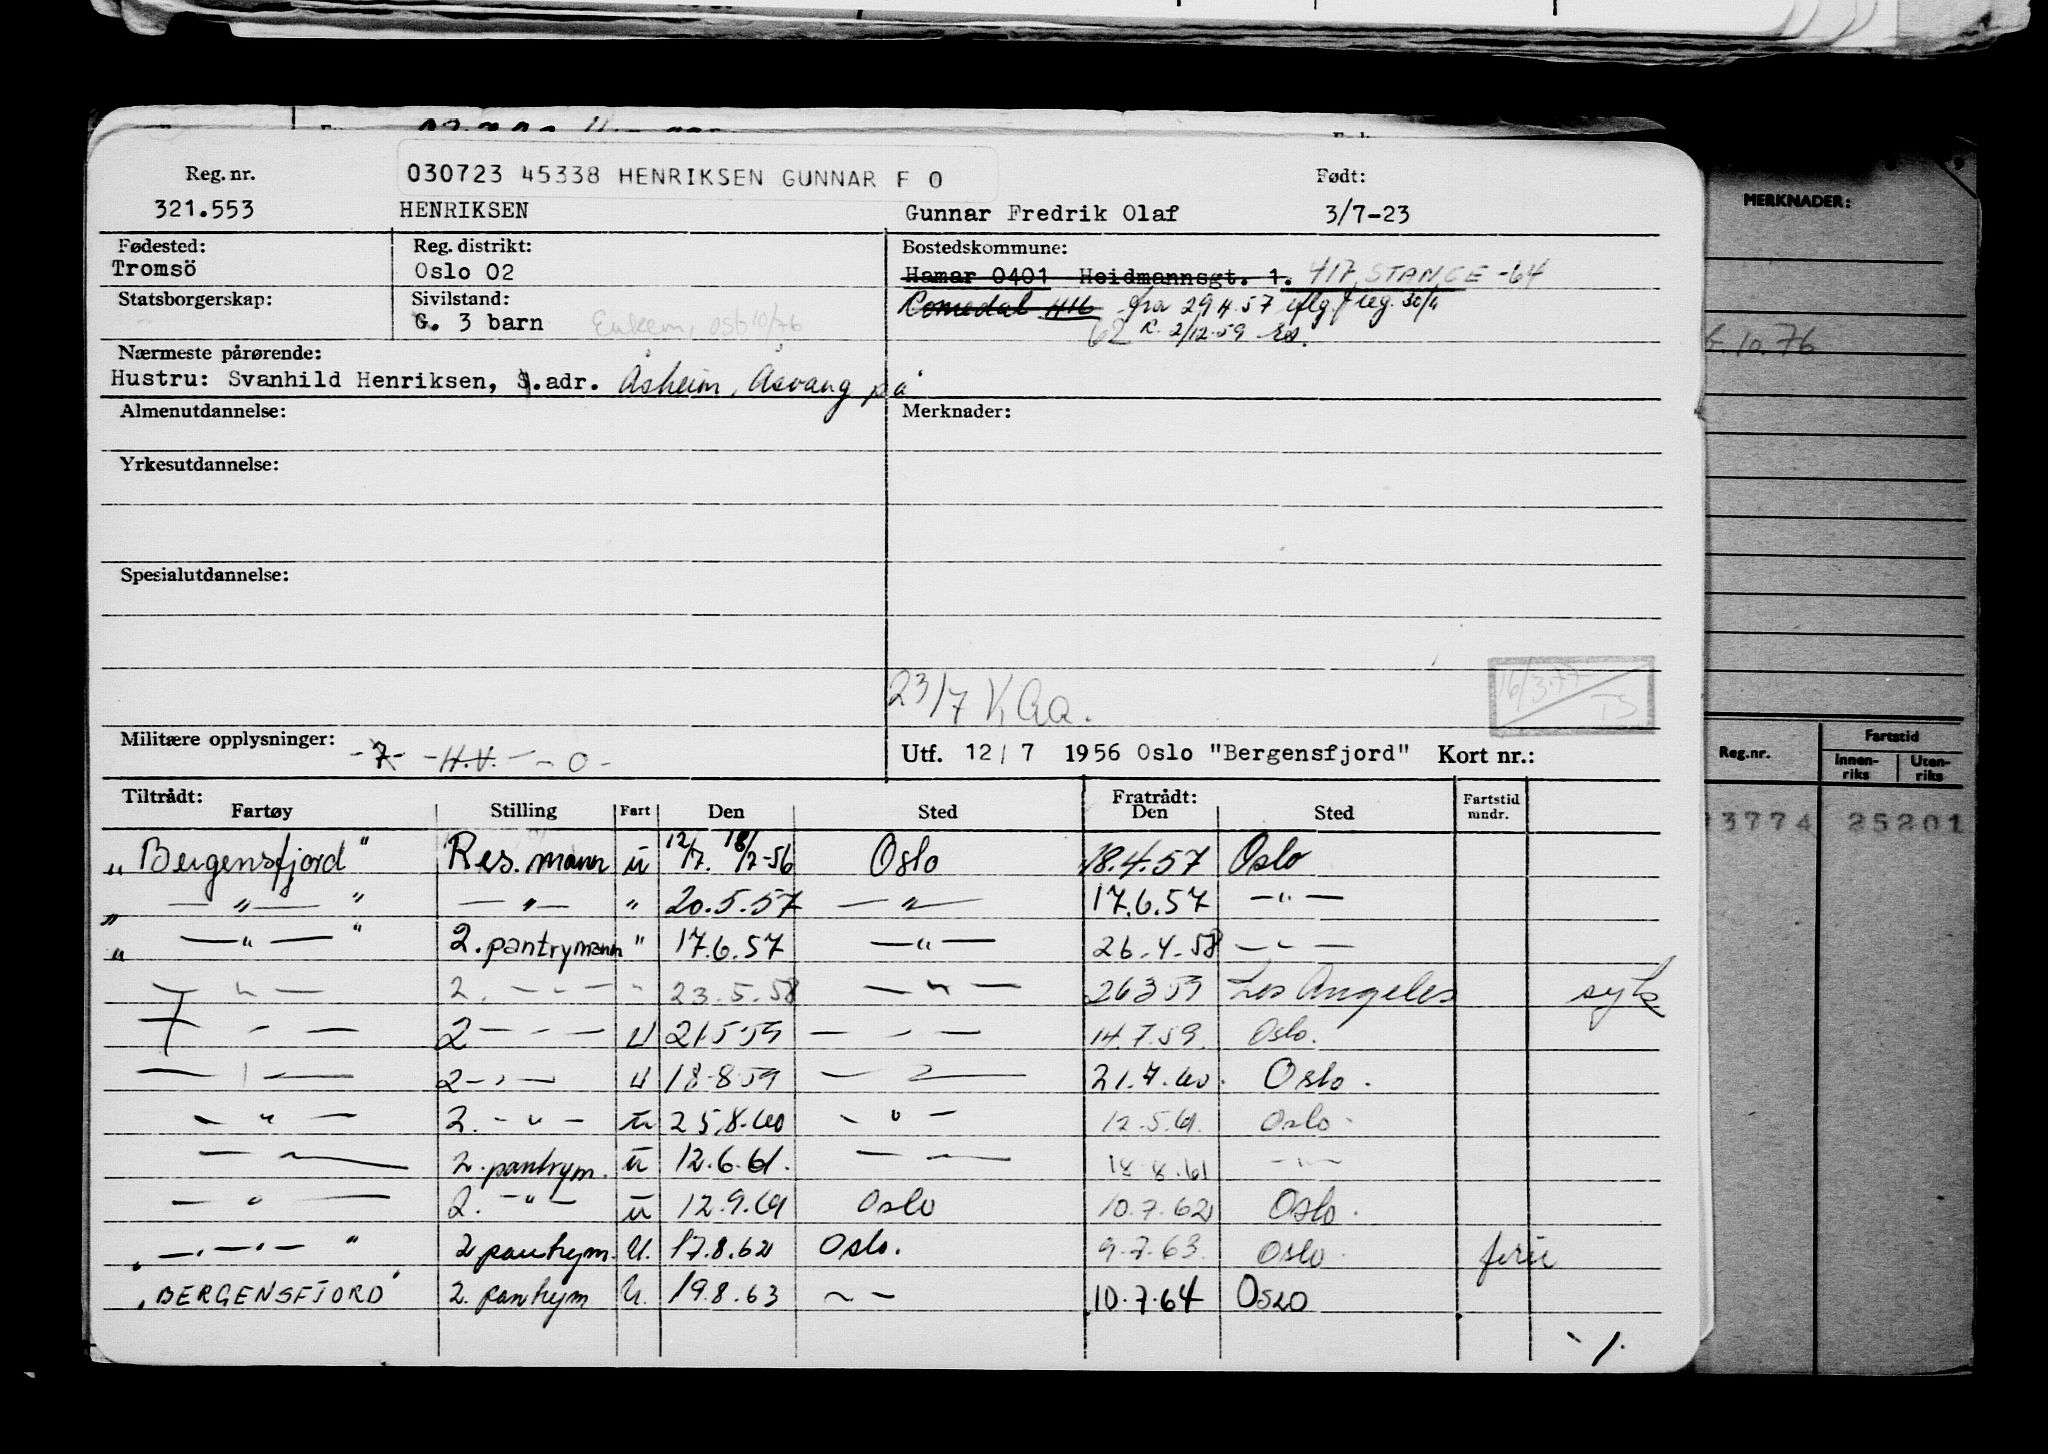 030723 45338 HENRIKSEN GUNNAR F O
Reg. nr. Født:
321.553 HENRIKSEN Gunnar Fredrik Olaf 3/7-23
Fødested: Reg. distrikt: Bostedskommune:
Tromsö Oslo 02 Hamar 0401 Heidmannsgt. 1. 417 STANGE -64
Statsborgerskap: Sivilstand: Romedal 416 fra 29.4.57 iflg. reg. 30/4
G. 3 barn Enkem, Oslo 10/76 62 R. 2/12-59
Nærmeste pårørende:
Hustru: Svanhild Henriksen, s.adr. Åsheim, Åsvang på
Almenutdannelse: Merknader:
Yrkesutdannelse:
Spesialutdannelse:
23/7 KAa. 16/3-77 TS
Militære opplysninger: -7- -H.V.- -0-
Utf. 12/7 1956 Oslo "Bergensfjord" Kort nr.:
Tiltrådt: Fratrådt:
Fartøy Stilling Fart Den Sted Den Sted Fartstid mndr.
"Bergensfjord" Res. mann u 12/7. 18/7-56 Oslo 18.4.57 Oslo
" — " — " — " — " 20.5.57 — " — 17.6.57 — " —
" — " — " 2. pantrymann " 17.6.57 — " — 26.4.58 — " —
— " — 2. — " — " 23.5.58 — " — 26 3 59 Los Angeles syk
— " — 2 — " — U 21 5 59 — " — 14.7.59. Oslo.
— " — 2 — " — U 18-8 59 — " — 21.7.60. Oslo.
— " — 2. — " — u 25.8.60 — " — 12.5.61. Oslo.
— " — 2. pantrym. u 12.6.61. — " — 18.8.61 — " —
— " — 2. — " — u 12.9.61 Oslo 10.7.62 Oslo.
" — " — " 2 pantrym. U. 17.8.62 Oslo. 9.7.63. Oslo ferie
"BERGENSFJORD" 2. pantrym U. 19.8.63 — — 10.7.64 OSLO
./.
MERKNADER:
6.10.76
Reg.nr. Fartstid
Innen-riks Uten-riks
3774 25201